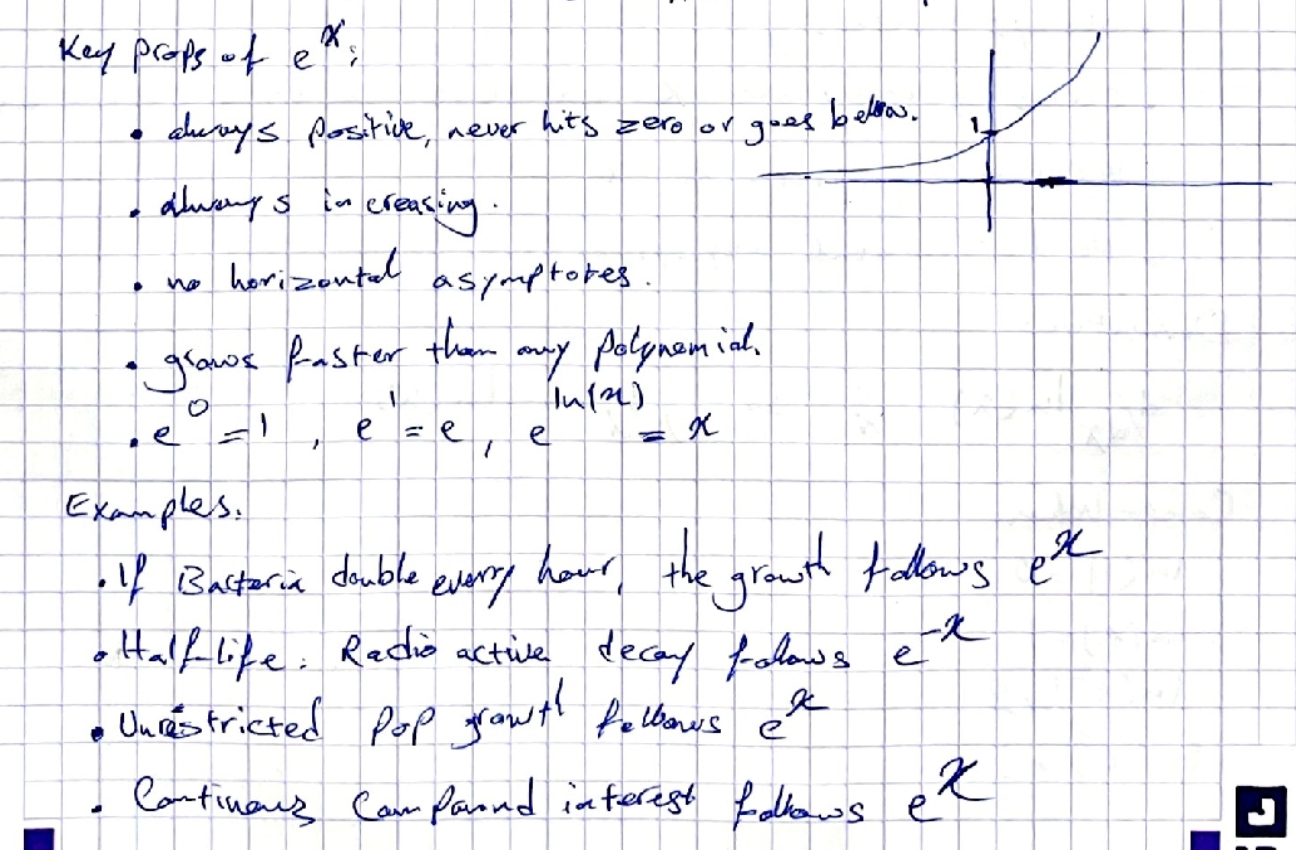 Key props of e^x:
• always positive, never hits zero or goes below.
1
• always increasing.
• no horizontal asymptotes.
• grows faster than any polynomial.
• e^0 = 1 , e^1 = e , e^ln(x) = x
Examples:
• If Bacteria double every hour, the growth follows e^x
• Half-life: Radio active decay follows e^-x
• Unrestricted pop growth follows e^x
• Continous Compound interest follows e^x
J